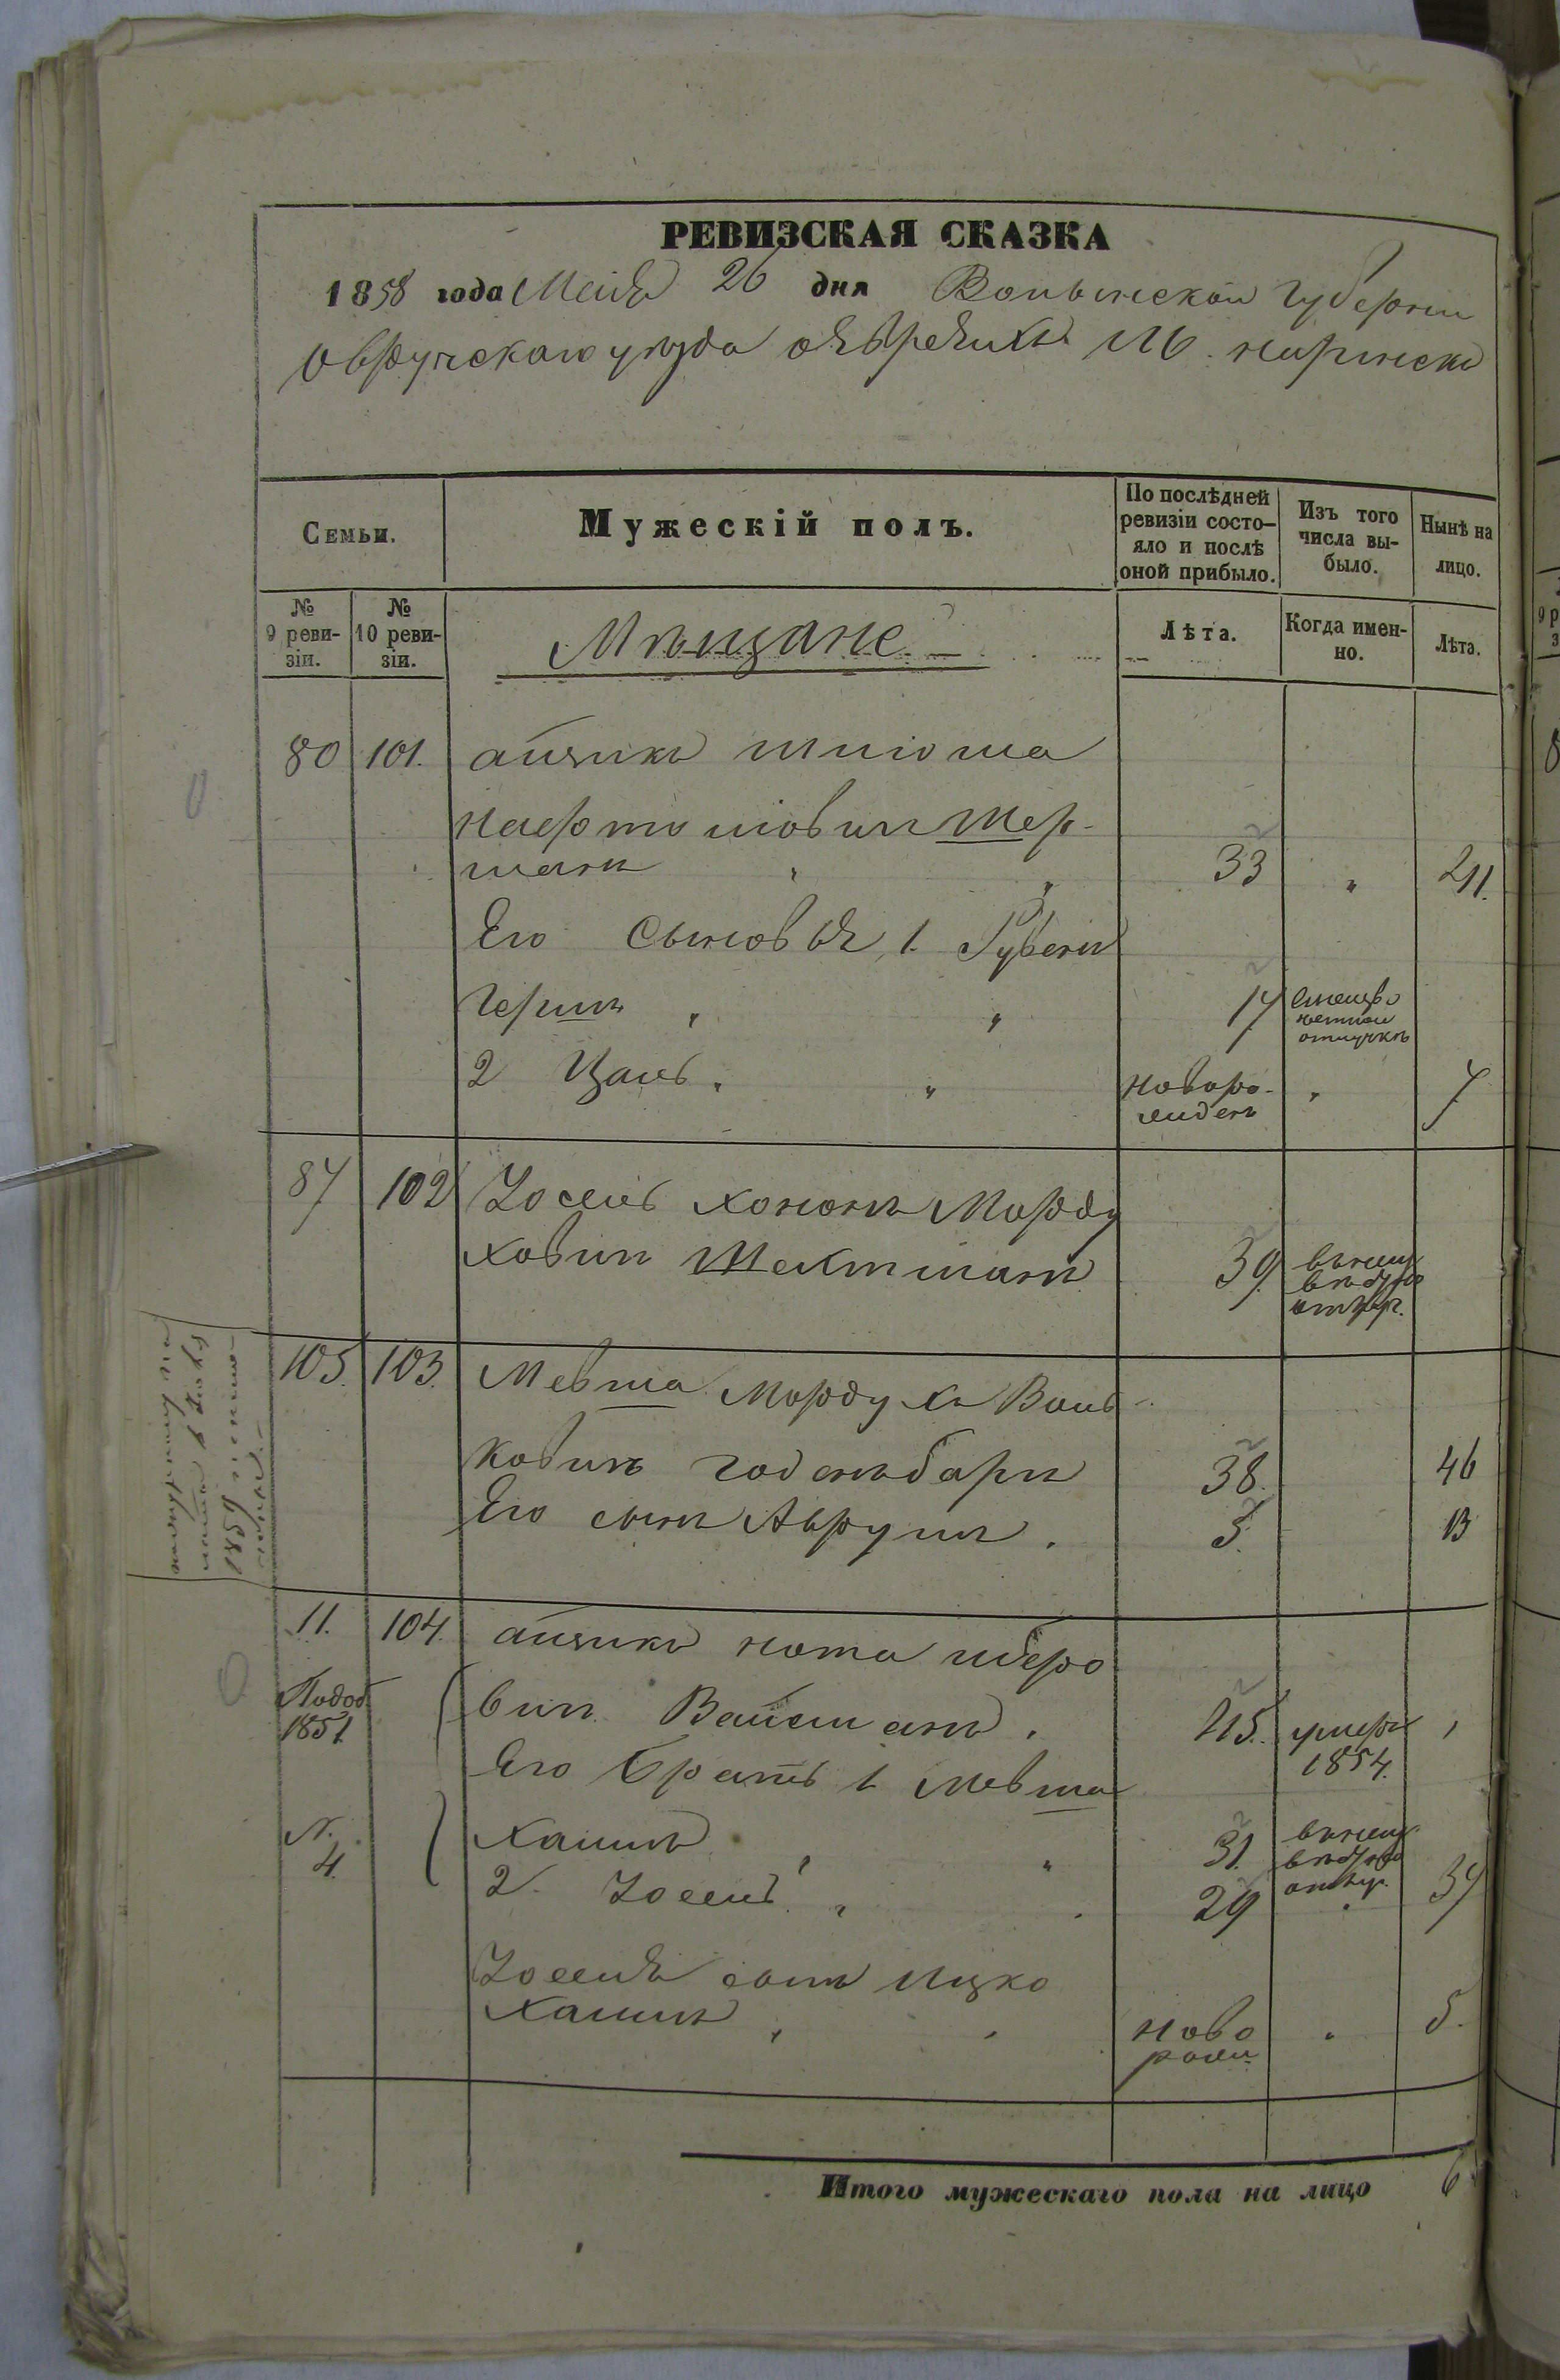 РЕВИЗСКАЯ СКАЗКА
1858 года Маія 26 дня Волынской губерніи
Овручскаго уезда о еврейхъ м. Наринска
Семьи.
Мужескій полъ.
По послѣдней ревизіи состо-
яло и послѣ оной прибыло.
Изъ того числа вы-
было.
Нынѣ на лицо.
№ 9 реви-
зіи.
№ 10 реви-
зіи.
Мѣщане
Лѣта.
Когда имен-
но.
Лѣта.
80 101. Айзикъ Шлиома
Шер-
манъ " " 33 " 41.
Его сыновья, 1. Рувенъ
Гершъ " " 17
отлучкѣ
2 Цаль " " новоро- " 7
жденъ
87 102 Іосель Хононъ Морду
ховичъ Шехтманъ 39
105. 103. Мевша Мордухъ Воль-
ковичъ Гольденбаргъ 38. 46
Его сынъ Аврумъ . 5. 13
1859
11. 104. Айзикъ Нота Шберо
Подоб. вичъ Вайсманъ . 45. умеръ
1851 1854.
Его братъ 1 Мевша
N. Хаимъ " " 31.
4.
2. Іосель " . 29 " 37
Іоселя сынъ Ицко
Хаимъ " " ново " 5.
рожд.
Итого мужескаго пола на лицо 6